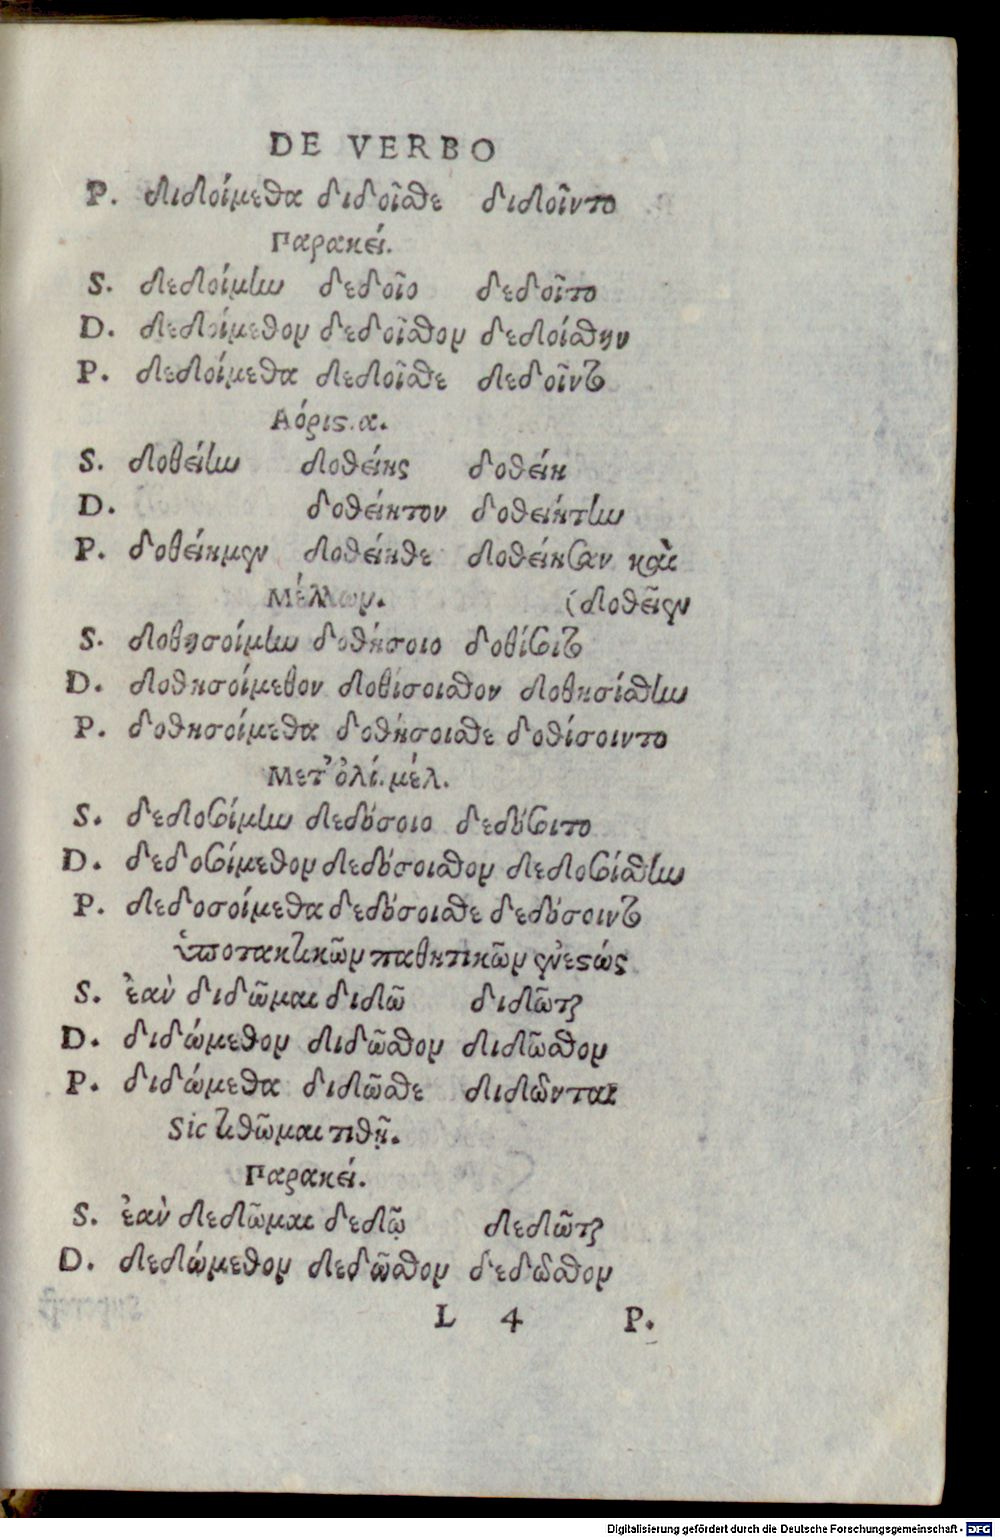 DE VERBO
P. διδοίμεθα διδοῖσθε διδοῖντο
Παρακεί.
S. δεδοίμην δεδοῖο δεδοῖτο
D. δεδοίμεθον δεδοῖσθον δεδοίσθην
P. δεδοίμεθα δεδοῖσθε δεδοῖντο
Αόρις. α.
S. δοθείην δοθείης δοθείη
D. δοθείητον δοθειήτην
P. δοθείημεν δοθείηθε δοθείησαν καὶ
Μέλλων. (δοθεῖεν
S. δοθησοίμην δοθήσοιο δοθίσοιτο
D. δοθησοίμεθον δοθίσοισθον δοθησίσθην
P. δοθησοίμεθα δοθήσοισθε δοθίσοιντο
Μετ' ὀλί. μέλ.
S. δεδοσίμην δεδόσοιο δεδόσοιτο
D. δεδοσίμεθον δεδόσοισθον δεδοσίσθην
P. δεδοσοίμεθα δεδόσοισθε δεδόσοιντο
ὑποτακτικῶν παθητικῶν ἐνεστώς
S. ἐὰν διδῶμαι διδῶ διδῶται
D. διδώμεθον διδῶσθον διδῶσθον
P. διδώμεθα διδῶσθε διδῶνται
Sic τιθῶμαι τιθῇ.
Παρακεί.
S. ἐὰν δεδῶμαι δεδῷ δεδῶται
D. δεδώμεθον δεδῶσθον δεδῶσθον
L 4 P.
Digitalisierung gefördert durch die Deutsche Forschungsgemeinschaft - DFG